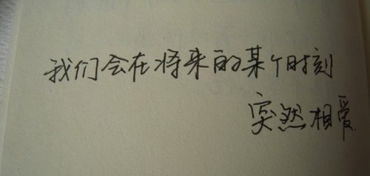 我们会在将来的某个时刻
突然相爱